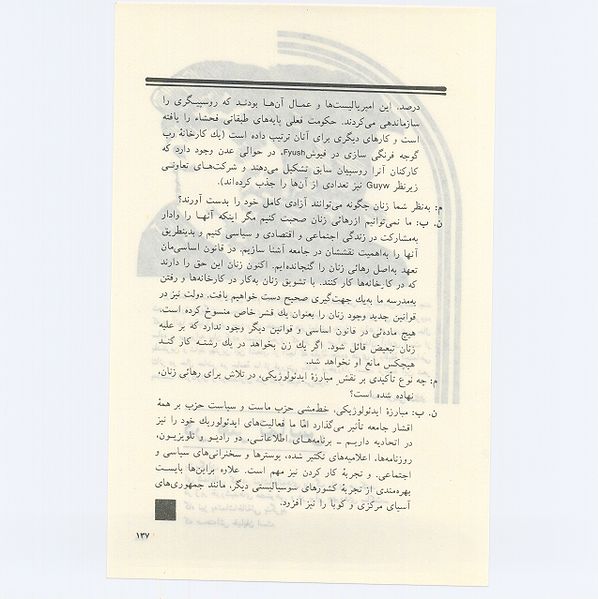 درصد. این امپریالیست‌ها و عمـال آن‌هـا بودنـد که روسپیـگری را
سازماندهی می‌کردند. حکومت فعلی پایه‌های طبقاتی فحشاء را یافته
است و کارهای دیگری برای آنان ترتیب داده است (یك كارخانهٔ رب
گوجه فرنگی سازی در فیوش Fyush، در حوالی عدن وجود دارد که
کارکنان آنرا روسپیان سابق تشکیل می‌دهند و شرکت‌هـای تعاونـی
زیرنظر Guyw نیز تعدادی از آن‌ها را جذب کرده‌اند).
م: به‌نظر شما زنان چگونه می‌توانند آزادی کامل خود را بدست آورند؟
ن. ب: ما نمی‌توانیم ازرهائی زنان صحبت کنیم مگر اینکه آنهـا را وادار
به‌مشارکت در زندگی اجتماعی و اقتصادی و سیاسی کنیم و بدینطریق
آنها را به‌اهمیت نقششان در جامعه آشنا سازیم. در قانون اساسی‌مان
تعهد به‌اصل رهائی زنان را گنجانده‌ایم. اکنون زنان این حق را دارند
که در کارخانه‌ها کار کنند. با تشویق زنان به‌کار در کارخانه‌ها و رفتن
به‌مدرسه ما به‌یك جهت‌گیری صحیح دست خواهیم یافت. دولت نیز در
قوانین جدید وجود زنان را بعنوان یك قشر خاص منسوخ کرده است.
هیچ ماده‌ئی در قانون اساسی و قوانین دیگر وجود ندارد که بر علیه
زنان تبعیض قائل شود. اگر یك زن بخواهد در یك رشتـه کار کنـد
هیچکس مانع او نخواهد شد.
م: چه نوع تأکیدی بر نقش مبارزهٔ ایدئولوژیکی، در تلاش برای رهائی زنان،
نهاده شده است؟
ن. ب: مبارزهٔ ایدئولوژیکی، خط‌مشی حزب ماست و سیاست حزب بر همهٔ
اقشار جامعه تأثیر می‌گذارد امّا ما فعالیت‌های ایدئولوریك خود را نیز
در اتحادیه داریـم ـ برنامه‌هـای اطلاعاتـی، دو رادیـو و تلویزیـون،
روزنامه‌ها، اعلامیه‌های تکثیر شده، پوسترها و سخنرانی‌های سیاسی و
اجتماعی. و تجربهٔ کار کردن نیز مهم است. علاوه براین‌ها بایست
بهره‌مندی از تجربهٔ کشورهای سوسیالیستی دیگر، مانند جمهوری‌های
آسیای مرکزی و کوبا را نیز افزرد.
۱۳۷